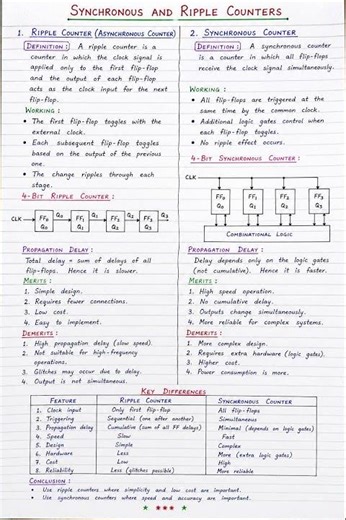 SYNCHRONOUS AND RIPPLE COUNTERS
1. RIPPLE COUNTER (ASYNCHRONOUS COUNTER)
DEFINITION : A ripple counter is a
counter in which the clock signal is
applied only to the first flip-flop
and the output of each flip-flop
acts as the clock input for the next
flip-flop.
WORKING :
• The first flip-flop toggles with the
external clock.
• Each subsequent flip-flop toggles
based on the output of the previous
one.
• The change ripples through each
stage.
4-BIT RIPPLE COUNTER :
Q0 Q1 Q2 Q3
CLK FF0 FF1 FF2 FF3
Q0 Q1 Q2 Q3
PROPAGATION DELAY :
Total delay = sum of delays of all
flip-flops. Hence it is slower.
MERITS :
1. Simple design.
2. Requires fewer connections.
3. Low cost.
4. Easy to implement.
DEMERITS :
1. High propagation delay (slow speed).
2. Not suitable for high-frequency
operations.
3. Glitches may occur due to delay.
4. Output is not simultaneous.
2. SYNCHRONOUS COUNTER
DEFINITION : A synchronous counter
is a counter in which all flip-flops
receive the clock signal simultaneously.
WORKING :
• All flip-flops are triggered at the
same time by the common clock.
• Additional logic gates control when
each flip-flop toggles.
• No ripple effect occurs.
4-BIT SYNCHRONOUS COUNTER :
CLK
FF0 FF1 FF2 FF3
Q0 Q1 Q2 Q3
COMBINATIONAL LOGIC
PROPAGATION DELAY :
Delay depends only on the logic gates
(not cumulative). Hence it is faster.
MERITS :
1. High speed operation.
2. No cumulative delay.
3. Outputs change simultaneously.
4. More reliable for complex systems.
DEMERITS :
1. More complex design.
2. Requires extra hardware (logic gates).
3. Higher cost.
4. Power consumption is more.
KEY DIFFERENCES
FEATURE RIPPLE COUNTER SYNCHRONOUS COUNTER
1. Clock input Only first flip-flop All flip-flops
2. Triggering Sequential (one after another) Simultaneous
3. Propagation delay Cumulative (sum of all FF delays) Minimal (depends on logic gates)
4. Speed Slow Fast
5. Design Simple Complex
6. Hardware Less More (extra logic gates)
7. Cost Low High
8. Reliability Less (glitches possible) More reliable
CONCLUSION :
• Use ripple counters where simplicity and low cost are important.
• Use synchronous counters where speed and accuracy are important.